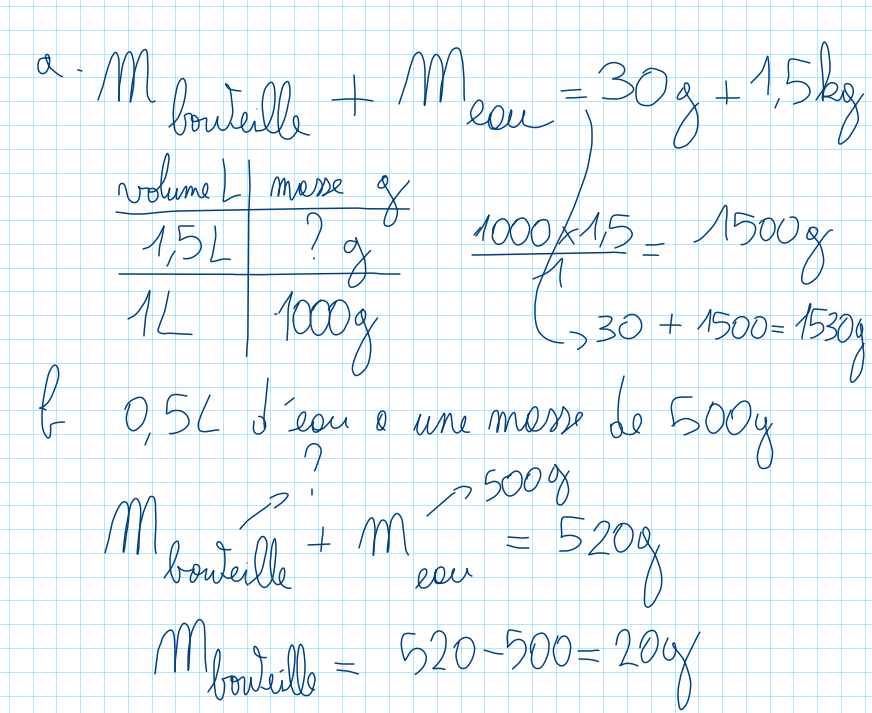 a. m bouteille + m eau = 30g + 1,5kg
volume L | masse g
1,5L | ? g
1L | 1000g
1000 x 1,5 / 1 = 1500g
30 + 1500 = 1530g
b 0,5L d'eau a une masse de 500g
? 500g
m bouteille + m eau = 520g
m bouteille = 520 - 500 = 20g